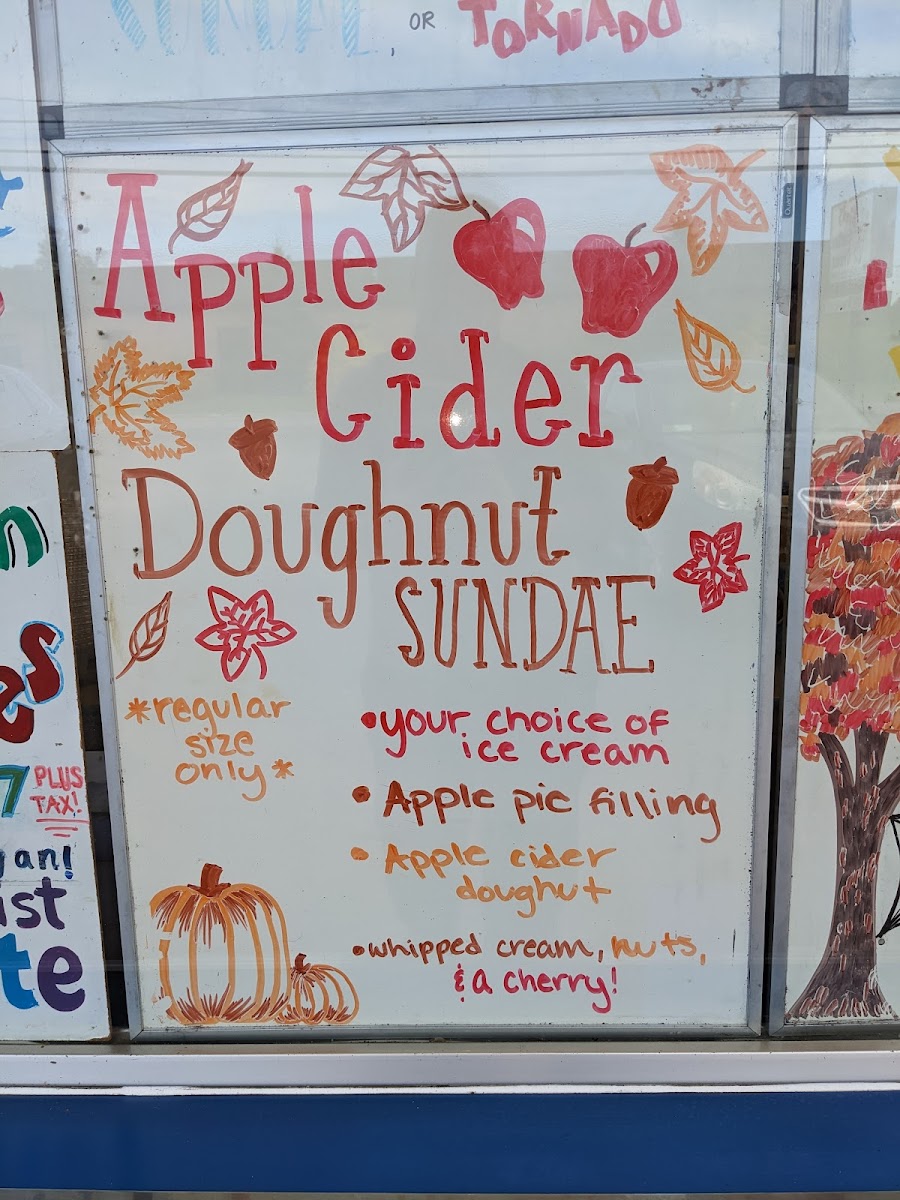 SUNDAE, OR TORNADO
Apple
Cider
Doughnut
SUNDAE
*regular
size
only*
•your choice of
ice cream
• Apple pie filling
• Apple cider
doughut
•whipped cream, nuts,
& a cherry!
n
es
7 PLUS
TAX!
an!
ist
te